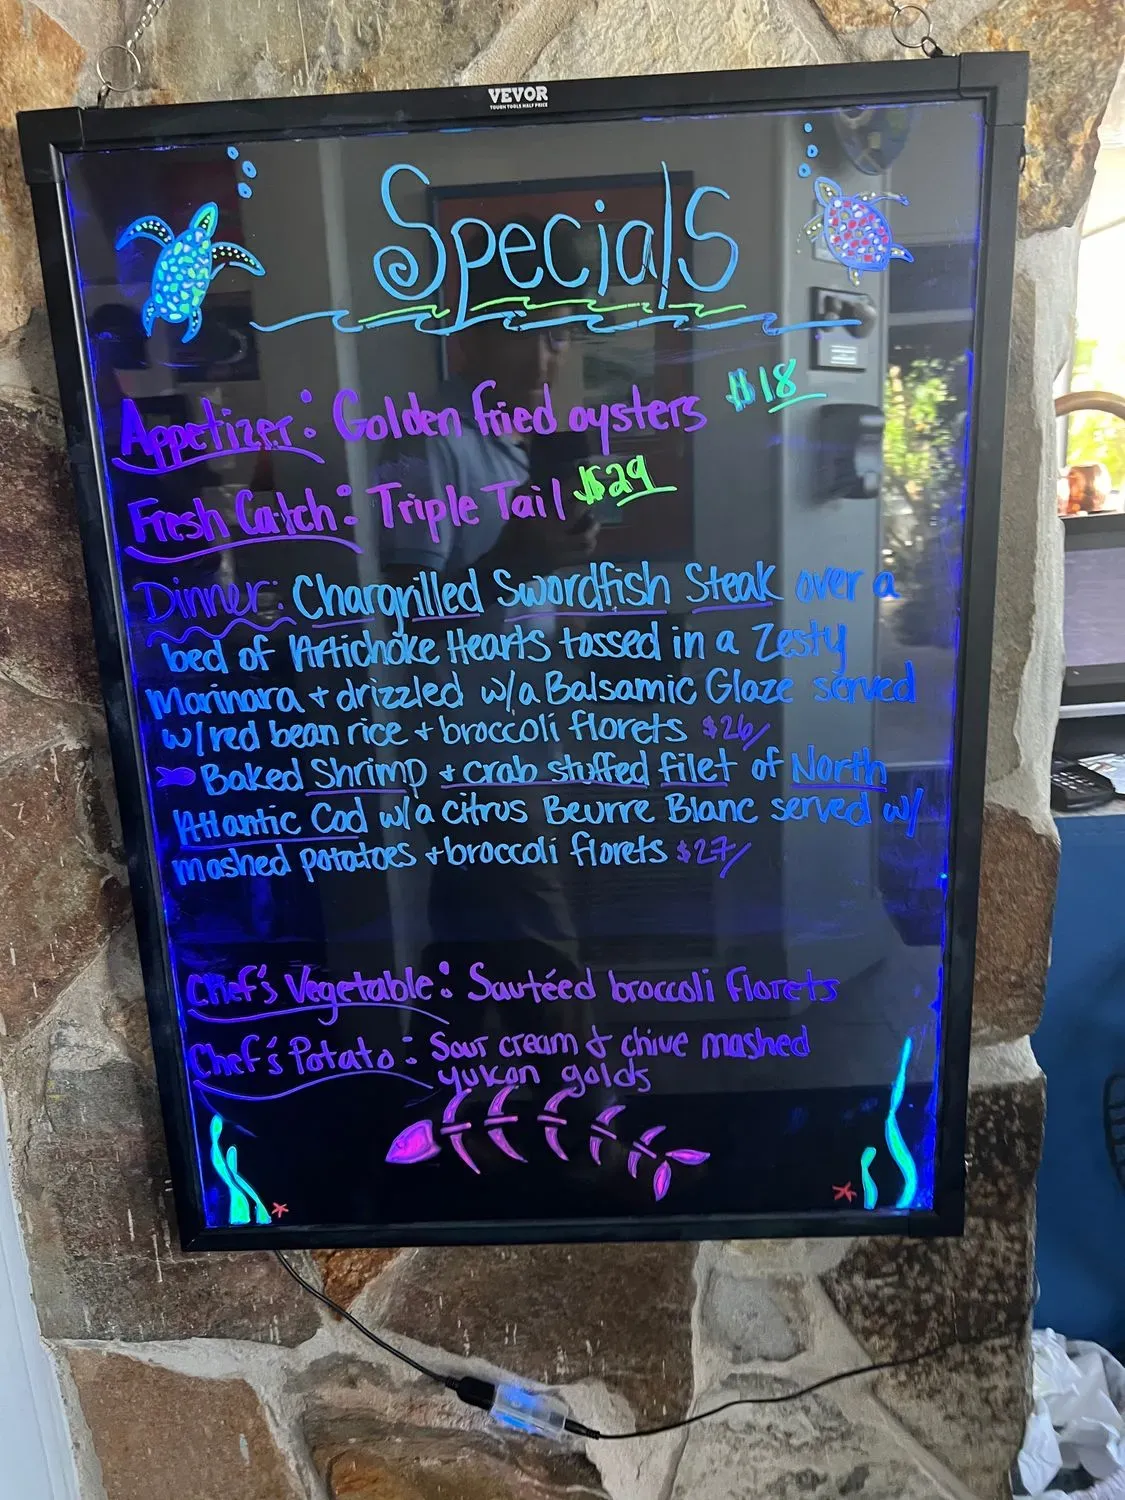 VEVOR
TOUGH TOOLS HALF PRICE
Specials
Appetizer: Golden fried oysters $18
Fresh Catch: Triple Tail $29
Dinner: Chargrilled Swordfish Steak over a
bed of Artichoke Hearts tossed in a Zesty
Marinara + drizzled w/a Balsamic Glaze served
w/red bean rice + broccoli florets $26/
Baked Shrimp + crab stuffed filet of North
Atlantic Cod w/a citrus Beurre Blanc served w/
mashed potatoes + broccoli florets $27/
Chef's Vegetable: Sautéed broccoli florets
Chef's Potato: Sour cream & chive mashed
yukon golds